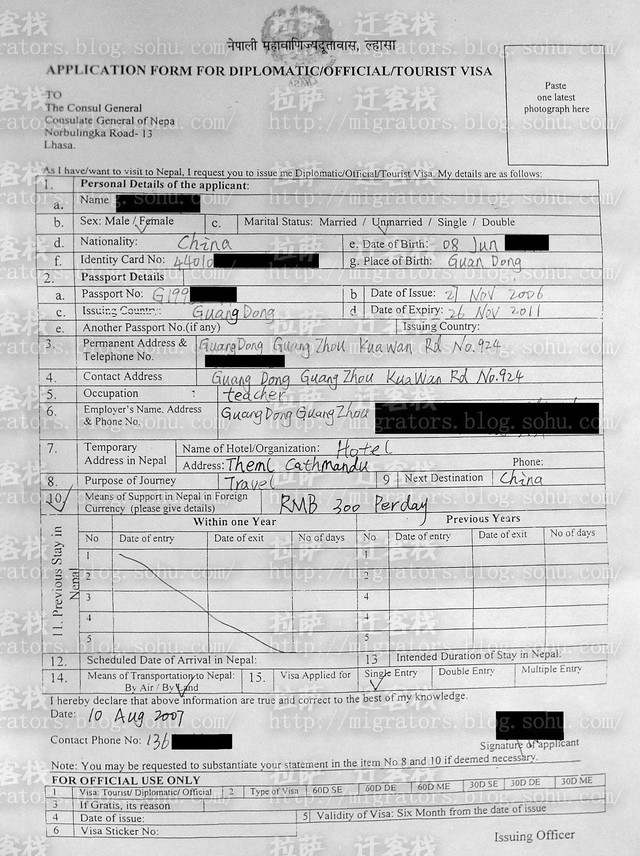 नेपाली महावाणिज्यदूतावास, ल्हासा
APPLICATION FORM FOR DIPLOMATIC/OFFICIAL/TOURIST VISA
Paste
one latest
photograph here
TO
The Consul General
Consulate General of Nepa
Norbulingka Road- 13
Lhasa.
As I have/want to visit to Nepal, I request you to issue me Diplomatic/Official/Tourist Visa. My details are as follows:
1. Personal Details of the applicant:
a. Name
b. Sex: Male / Female c. Marital Status: Married / Unmarried / Single / Double
d. Nationality: China e. Date of Birth: 08 Jun
f. Identity Card No: 44010 g. Place of Birth: Guan Dong
2. Passport Details
a. Passport No: G199 b Date of Issue: 21 NOV 2006
c. Issuing Country: Guang Dong d Date of Expiry: 26 Nov 2011
e. Another Passport No.(if any) Issuing Country:
3. Permanent Address & Telephone No. GuangDong GuangZhou KuaWan Rd No.924
4. Contact Address Guang Dong GuangZhou KuaWan Rd No.924
5. Occupation : teacher
6. Employer's Name, Address & Phone No. GuangDong GuangZhou
7. Temporary Address in Nepal Name of Hotel/Organization: Hotel
Address: Theml Cathmandu Phone:
8. Purpose of Journey Travel 9 Next Destination China
10. Means of Support in Nepal in Foreign Currency (please give details) RMB 300 Perday
11. Previous Stay in Nepal
Within one Year Previous Years
No Date of entry Date of exit No of days No Date of entry Date of exit No of days
1 1
2 2
3 3
4 4
5 5
12. Scheduled Date of Arrival in Nepal: 13 Intended Duration of Stay in Nepal:
14. Means of Transportation to Nepal: By Air / By Land 15. Visa Applied for Single Entry Double Entry Multiple Entry
I hereby declare that above information are true and correct to the best of my knowledge.
Date: 10 Aug 2007
Contact Phone No: 136
Signature of applicant
Note: You may be requested to substantiate your statement in the item No.8 and 10 if deemed necessary.
FOR OFFICIAL USE ONLY
1 Visa: Tourist/ Diplomatic/ Official 2 Type of Visa 60D SE 60D DE 60D ME 30D SE 30D DE 30D ME
3 If Gratis, its reason
4 Date of issue: 5 Validity of Visa: Six Month from the date of issue
6 Visa Sticker No:
Issuing Officer
拉萨 迁客栈
http://migrators.blog.sohu.com/